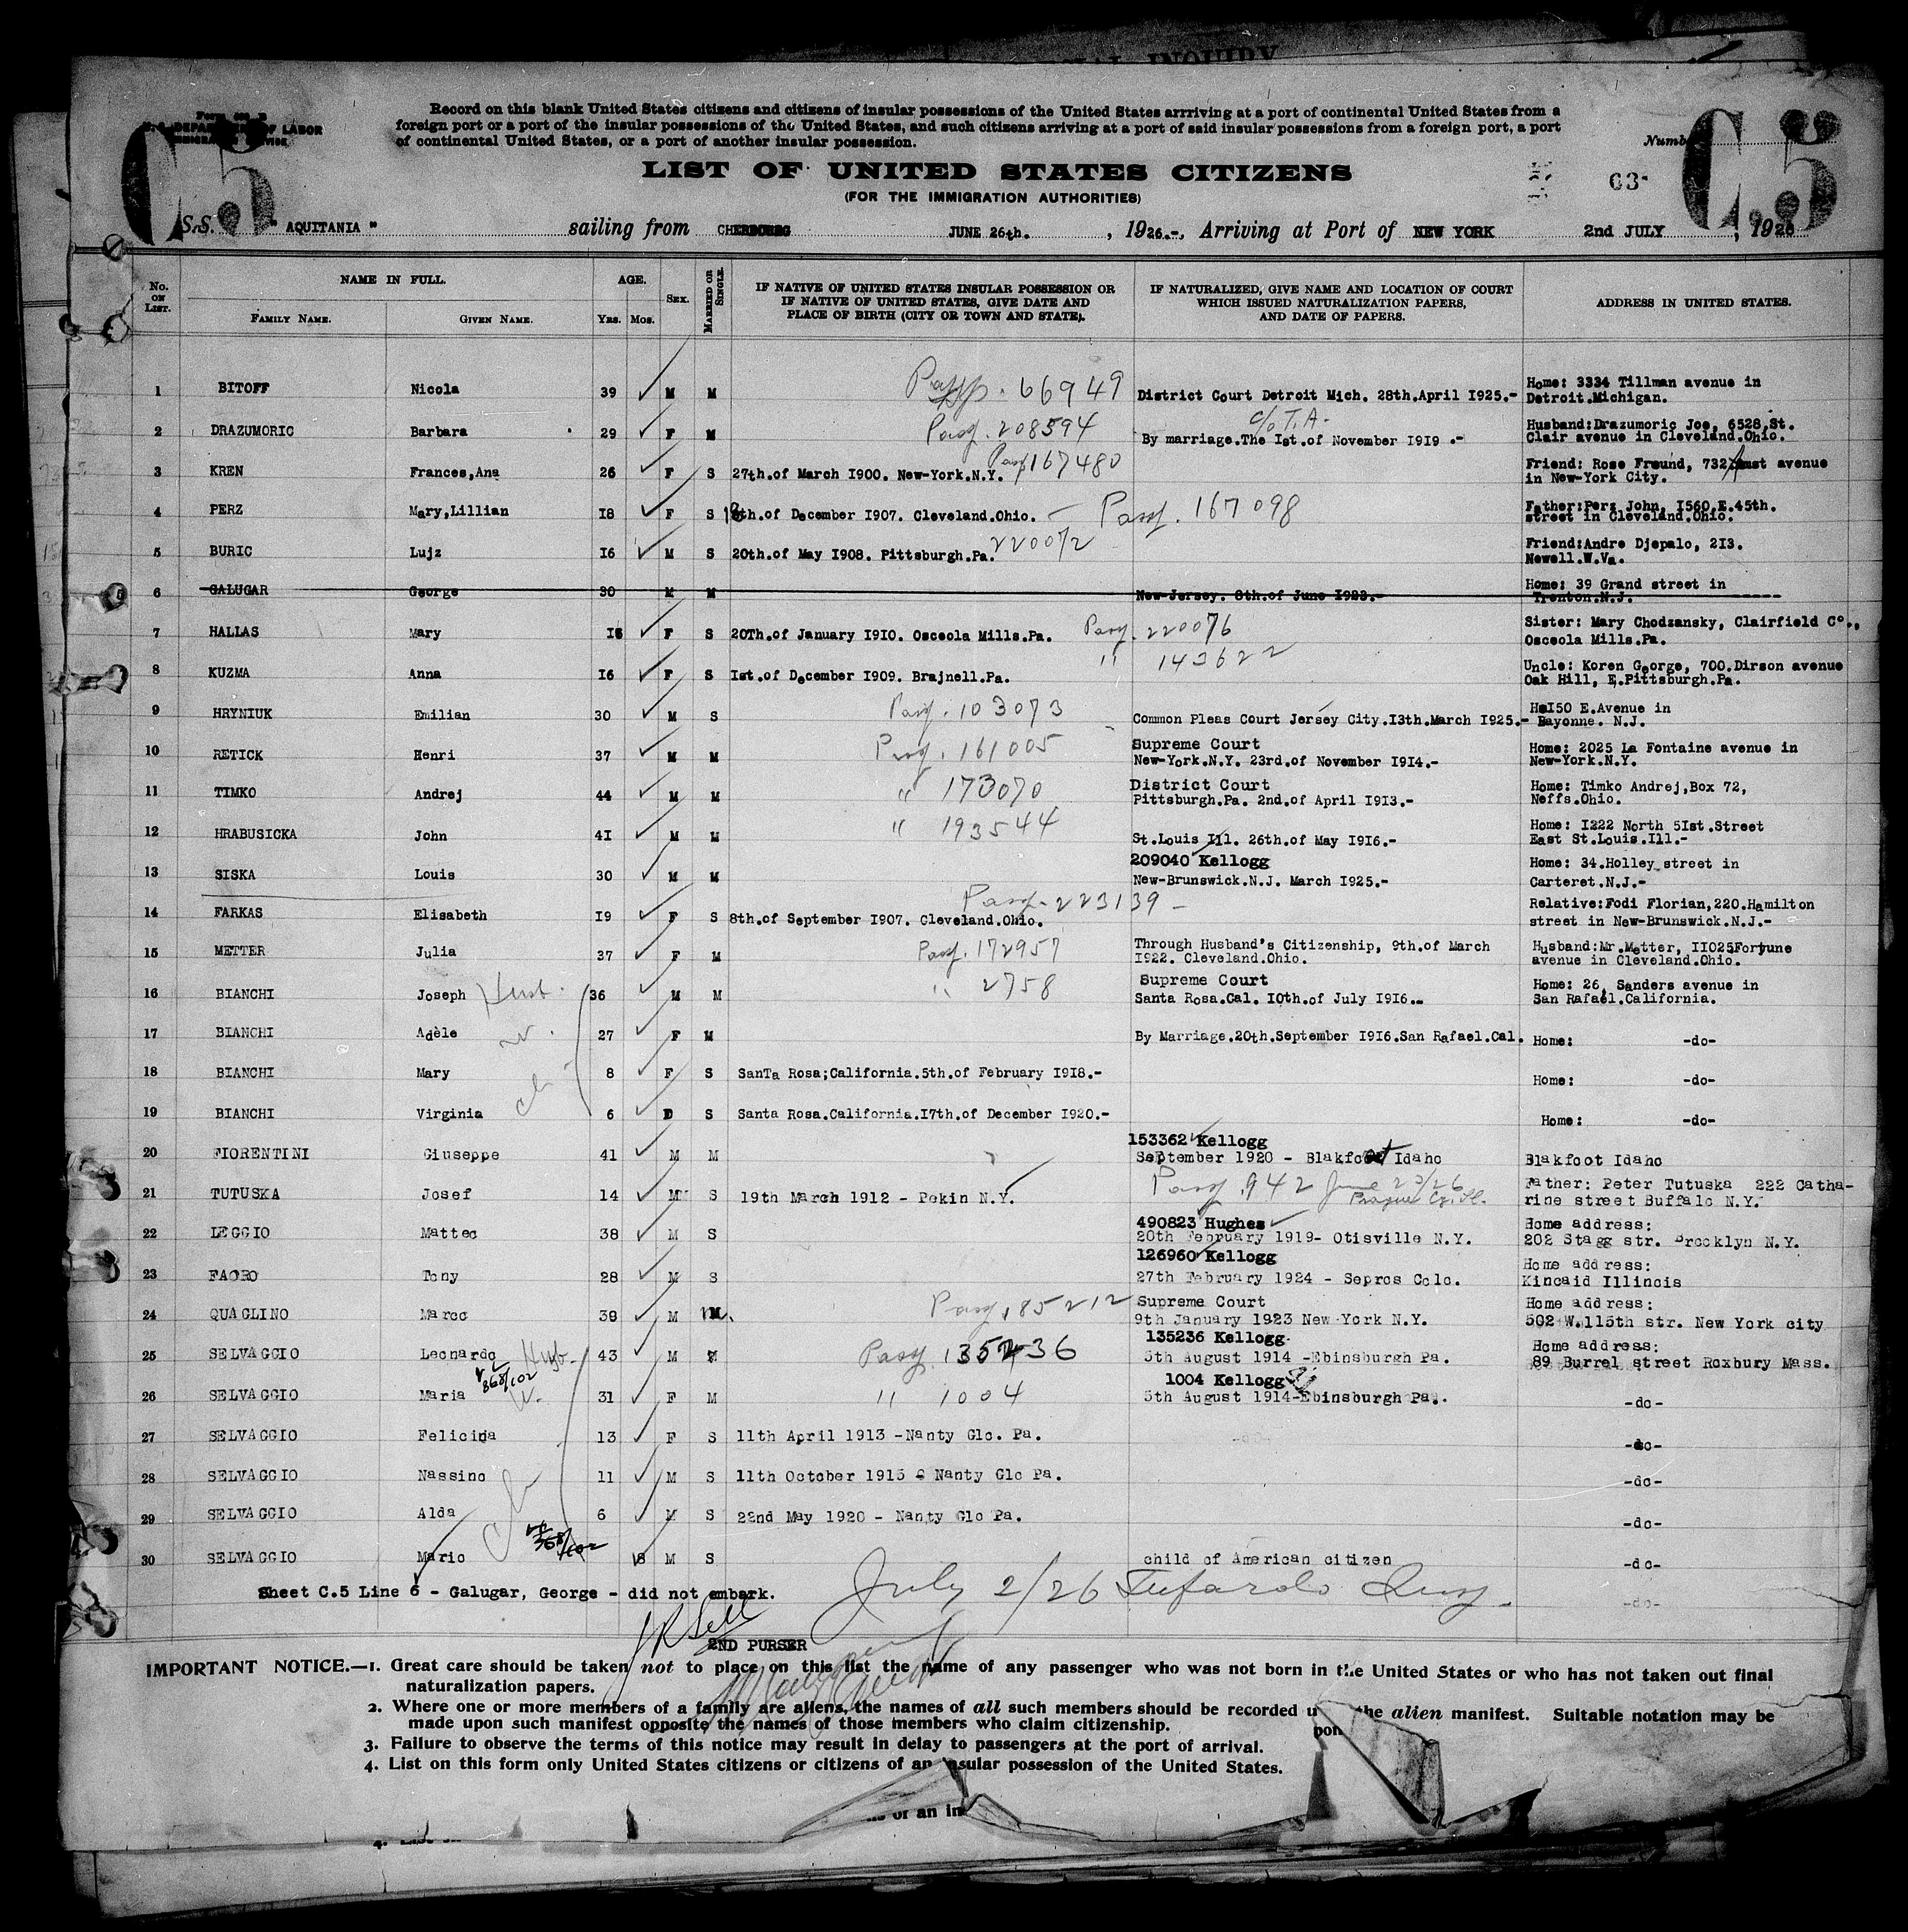 SPECIAL INQUIRY
Record on this blank United States citizens and citizens of insular possessions of the United States arrriving at a port of continental United States from a
foreign port or a port of the insular possessions of the United States, and such citizens arriving at a port of said insular possessions from a foreign port, a port
of continental United States, or a port of another insular possession.
LIST OF UNITED STATES CITIZENS
(FOR THE IMMIGRATION AUTHORITIES)
C5 C.5
63
S.S. " AQUITANIA " sailing from CHERBOURG JUNE 26th. , 1926.-, Arriving at Port of NEW YORK 2nd JULY , 1926
No. ON LIST. NAME IN FULL. FAMILY NAME. GIVEN NAME. AGE. YRS. MOS. SEX. MARRIED OR SINGLE. IF NATIVE OF UNITED STATES INSULAR POSSESSION OR IF NATIVE OF UNITED STATES, GIVE DATE AND PLACE OF BIRTH (CITY OR TOWN AND STATE). IF NATURALIZED, GIVE NAME AND LOCATION OF COURT WHICH ISSUED NATURALIZATION PAPERS, AND DATE OF PAPERS. ADDRESS IN UNITED STATES.
1 BITOFF Nicola 39 M M Passp. 66949 District Court Detroit Mich. 28th.April 1925.- Home: 3334 Tillman avenue in
Detroit.Michigan.
2 DRAZUMORIC Barbara 29 F M Pass. 208594 c/o T.A. By marriage.The Ist.of November 1919 .- Husband:Drazumoric Joe, 6528,St.
Clair avenue in Cleveland.Ohio.
3 KREN Frances,Ana 26 F S 27th.of March 1900. New-York.N.Y. Pass 167480 Friend: Rose Freund, 732 avenue
in New-York City.
4 PERZ Mary,Lillian 18 F S 18th.of December 1907. Cleveland.Ohio. - Pass. 167098 Father:Perz John, 1560,E.45th.
street in Cleveland.Ohio.
5 BURIC Lujz 16 M S 20th.of May 1908. Pittsburgh.Pa. 220072 Friend:Andre Djepalo, 213.
Newell.W.Va.
6 GALUGAR George 30 M M New-Jersey. 8th.of June 1923.- Home: 39 Grand street in
Trenton.N.J.
7 HALLAS Mary 16 F S 20Th.of January 1910. Osceola Mills.Pa. Pass. 220076 Sister: Mary Chodzansky, Clairfield Co.,
Osceola Mills.Pa.
8 KUZMA Anna 16 F S Ist.of December 1909. Brajnell.Pa. " 143622 Uncle: Koren George, 700.Dirson avenue
Oak Hill, E.Pittsburgh.Pa.
9 HRYNIUK Emilian 30 M S Pass. 103073 Common Pleas Court Jersey City.13th.March 1925.- 150 E.Avenue in
Bayonne. N.J.
10 RETICK Henri 37 M M Pass. 161005 Supreme Court
New-York.N.Y. 23rd.of November 1914.- Home: 2025 La Fontaine avenue in
New-York.N.Y.
11 TIMKO Andrej 44 M M " 173070 District Court
Pittsburgh.Pa. 2nd.of April 1913.- Home: Timko Andrej,Box 72,
Neffs.Ohio.
12 HRABUSICKA John 41 M M " 193544 St.Louis Ill. 26th.of May 1916.- Home: 1222 North 51st.Street
East St.Louis.Ill.-
13 SISKA Louis 30 M M 209040 Kellogg
New-Brunswick.N.J. March 1925.- Home: 34.Holley street in
Carteret.N.J.-
14 FARKAS Elisabeth 19 F S 8th.of September 1907. Cleveland.Ohio. Pass. 223139 - Relative:Fodi Florian,220.Hamilton
street in New-Brunswick.N.J.-
15 METTER Julia 37 F M Pass. 172957 Through Husband's Citizenship, 9th.of March
1922. Cleveland.Ohio. Husband:Mr.Metter, 11025Fortune
avenue in Cleveland.Ohio.
16 BIANCHI Joseph Husb. 36 M M " 2758 Supreme Court
Santa Rosa.Cal. 10th.of July 1916.- Home: 26, Sanders avenue in
San Rafael.California.
17 BIANCHI Adèle w. 27 F M By Marriage.20th.September 1916.San Rafael.Cal. Home: -do-
18 BIANCHI Mary 8 F S SanTa Rosa;California.5th.of February 1918.- Home: -do-
19 BIANCHI Virginia ch 6 D S Santa Rosa.California.17th.of December 1920.- Home: -do-
20 FIORENTINI Giuseppe 41 M M 153362 Kellogg
September 1920 - Blakfoot Idaho Blakfoot Idaho
21 TUTUSKA Josef 14 M S 19th March 1912 - Pekin N.Y. Pass. 942 June 23/26
Prague Cz.Sl. Father: Peter Tutuska 222 Catha-
rine street Buffalo N.Y.
22 LEGGIO Matteo 38 M S 490823 Hughes
20th February 1919- Otisville N.Y. Home address:
202 Stagg str. Brooklyn N.Y.
23 FAORO Tony 28 M S 126960 Kellogg
27th February 1924 - Sepros Colo. Home address:
Kincaid Illinois
24 QUAGLINO Marco 39 M M Pass. 185212 Supreme Court
9th January 1923 New York N.Y. Home address:
502 W.115th str. New York city
25 SELVAGGIO Leonardo Husb. 43 M M Pass. 135236 135236 Kellogg
5th August 1914 -Ebinsburgh Pa. Home address:
89 Burrel street Roxbury Mass.
26 SELVAGGIO Maria 368/102 W. 31 F M " 1004 1004 Kellogg
5th August 1914-Ebinsburgh Pa. -do-
27 SELVAGGIO Felicina 13 F S 11th April 1913 -Nanty Glo. Pa. -do-
28 SELVAGGIO Nassino 11 M S 11th October 1915 - Nanty Glo Pa. -do-
29 SELVAGGIO Alda ch 6 M S 22nd May 1920 - Nanty Glo Pa. -do-
30 SELVAGGIO Mario 368/102 8 M S child of American citizen -do-
Sheet C.5 Line 6 - Galugar, George - did not embark. July 2/26 Tufarolo Insp. -do-
2ND PURSER
IMPORTANT NOTICE.—1. Great care should be taken not to place on this list the name of any passenger who was not born in the United States or who has not taken out final
naturalization papers.
2. Where one or more members of a family are aliens, the names of all such members should be recorded upon the alien manifest. Suitable notation may be
made upon such manifest opposite the names of those members who claim citizenship.
3. Failure to observe the terms of this notice may result in delay to passengers at the port of arrival.
4. List on this form only United States citizens or citizens of an insular possession of the United States.